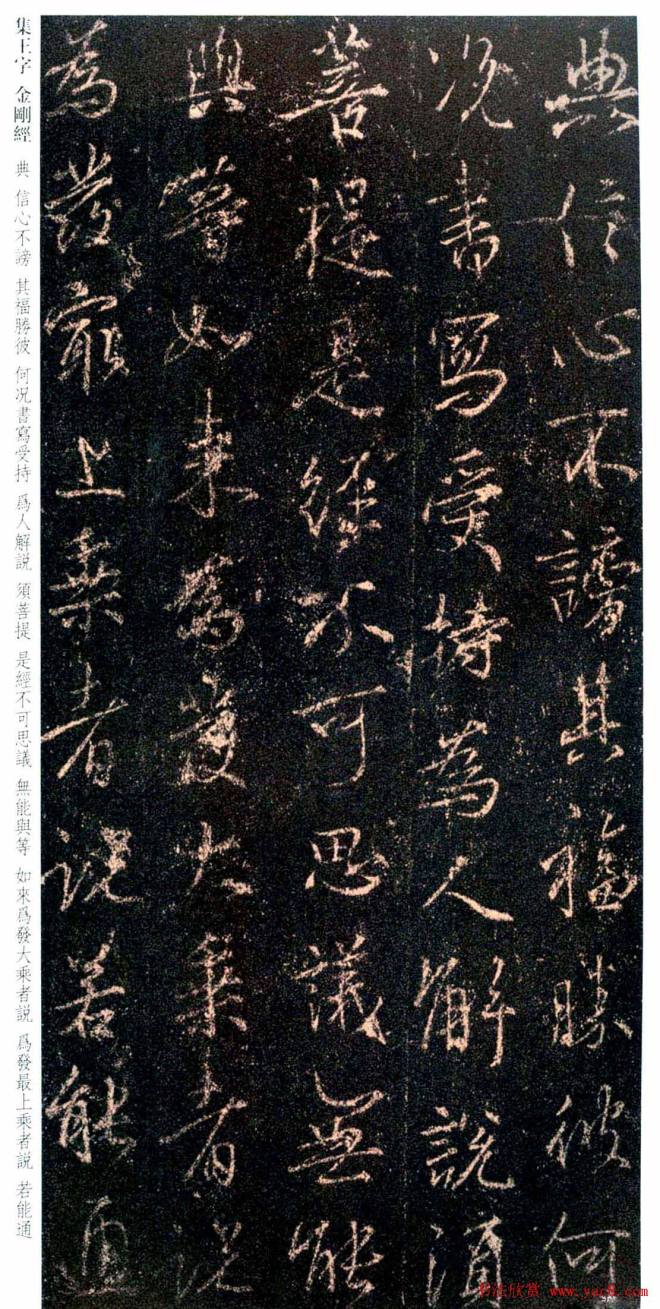 典信心不謗其福勝彼何
况書寫受持為人解說須
菩提是經不可思議無能
與等如来為發大乘者說
為發最上乘者說若能通
集王字 金剛經 典 信心不謗 其福勝彼 何况書寫受持 爲人解説 須菩提 是經不可思議 無能與等 如來爲發大乘者説 爲發最上乘者説 若能通
书法欣赏 www.yac8.com